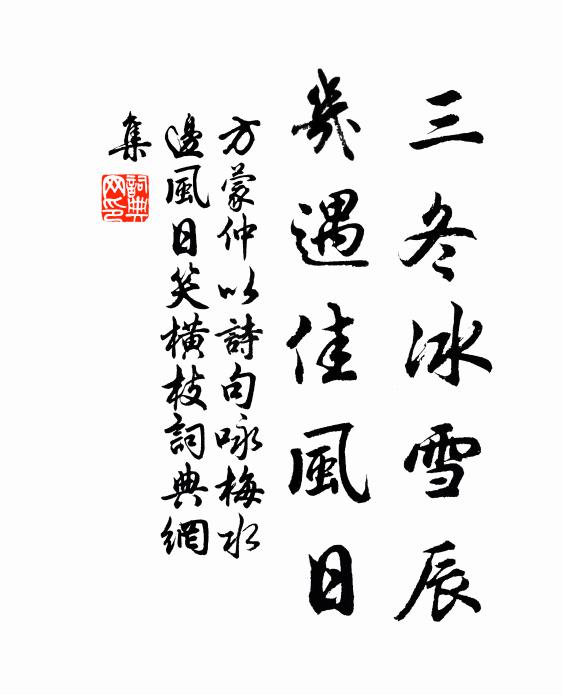 三冬冰雪辰
幾遇佳風日
方蒙仲以詩句咏梅水
邊風日笑橫枝詞典網
集
詞典
网印